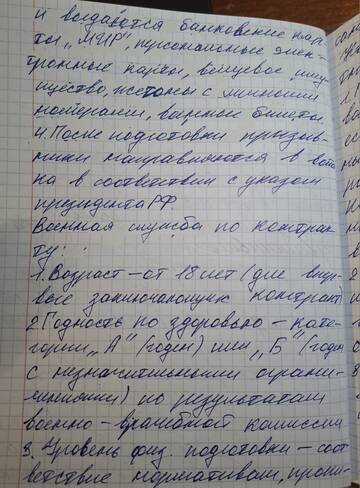 и выдаются банковские кар-
ты „МИР", персональные элек-
тронные карты, вещевое иму-
щество, жетоны с личными
номерами, военные билеты
4. После подготовки призыв-
ники направляются в
на в соответствии с указом
президента РФ
Военная служба по контрак-
ту:
1. Возраст – от 18 лет (для впер-
вые заключающих контракт)
2 Годность по здоровью – кате-
гории „А" (годен) или „Б" (годен
с незначительными ограни-
чениями) по результатам
военно – врачебной комиссии
3. Уровень физ. подготовки – соот-
ветствие нормативам,